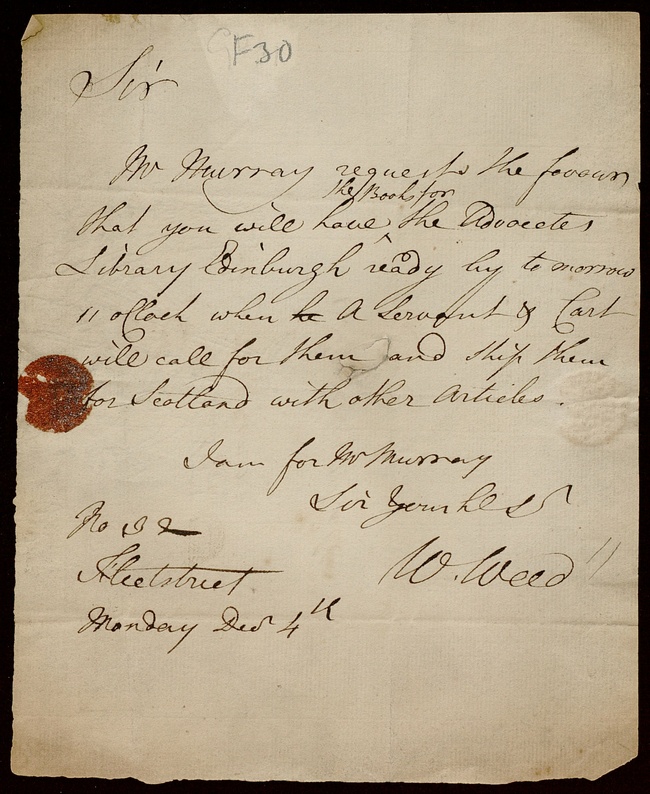 F30
Sir
Mr Murray requests the favour
the Books for
that you will have ^ the Advocates
Library Edinburgh ready by to morrow
11 oClock when he A Servant & Cart
will call for them and ship them
for Scotland with other Articles.
I am for Mr Murray
Sir Your hl st
W. Weed
No 32
Fleetstreet
Monday Decr 4th